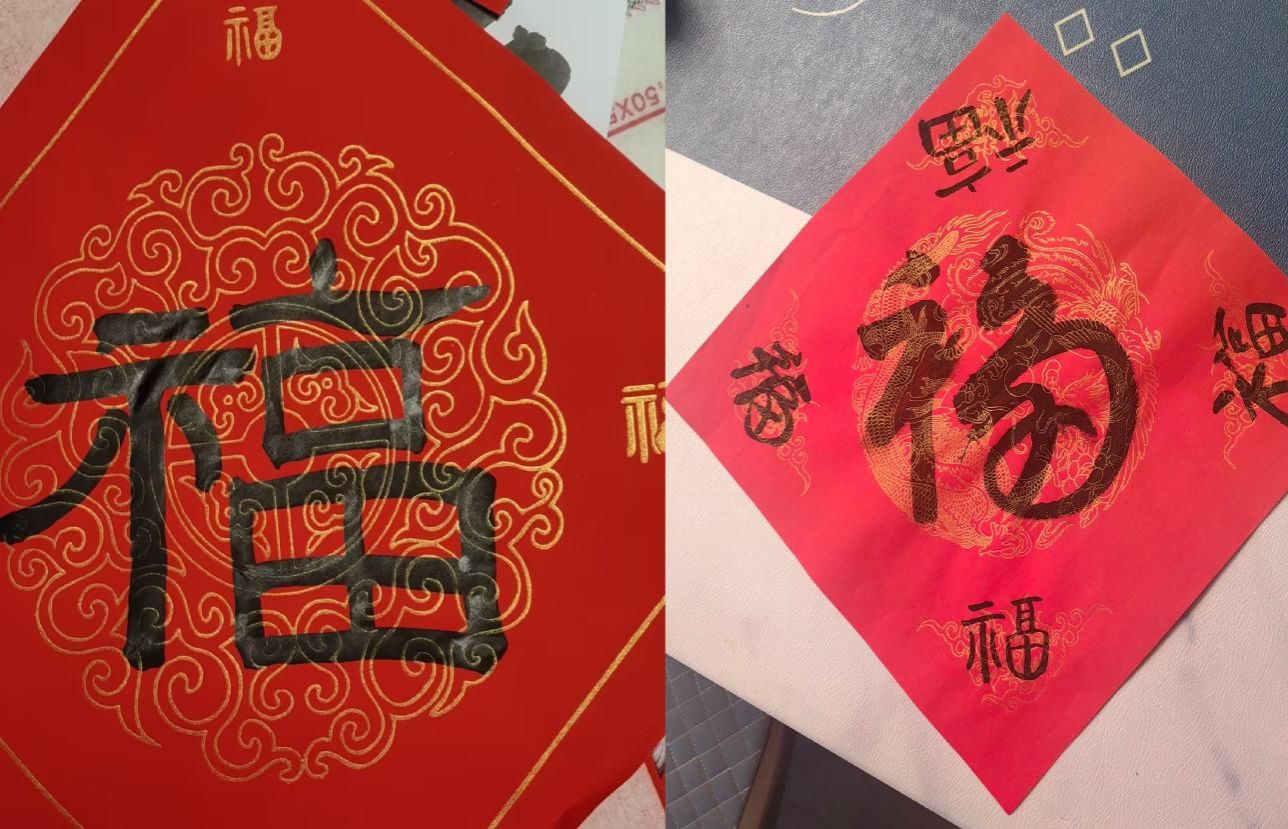 福
福
福
.50X
福
福
福
福
福